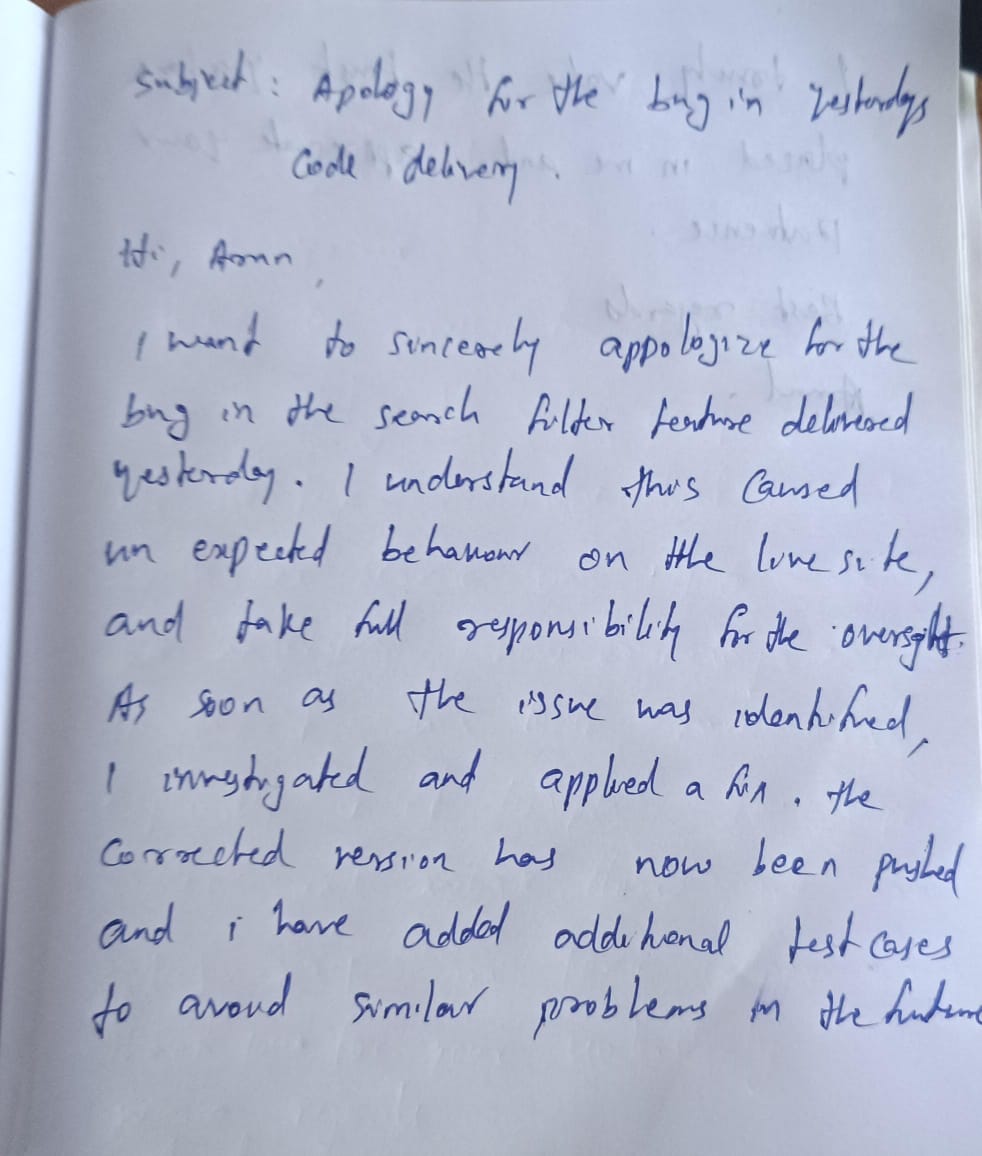 Subject: Apology for the bug in yesterdays
Code delivery.
Hi, Aman
I want to sincerely appologize for the
bug in the search filter feature delivered
yesterday. I understand this caused
un expected behaviour on the live site,
and take full responsibility for the oversight.
As soon as the issue was identified,
I investigated and applied a fix. the
Corrected version has now been pushed
and i have added additional test cases
to avoid similar problems in the future